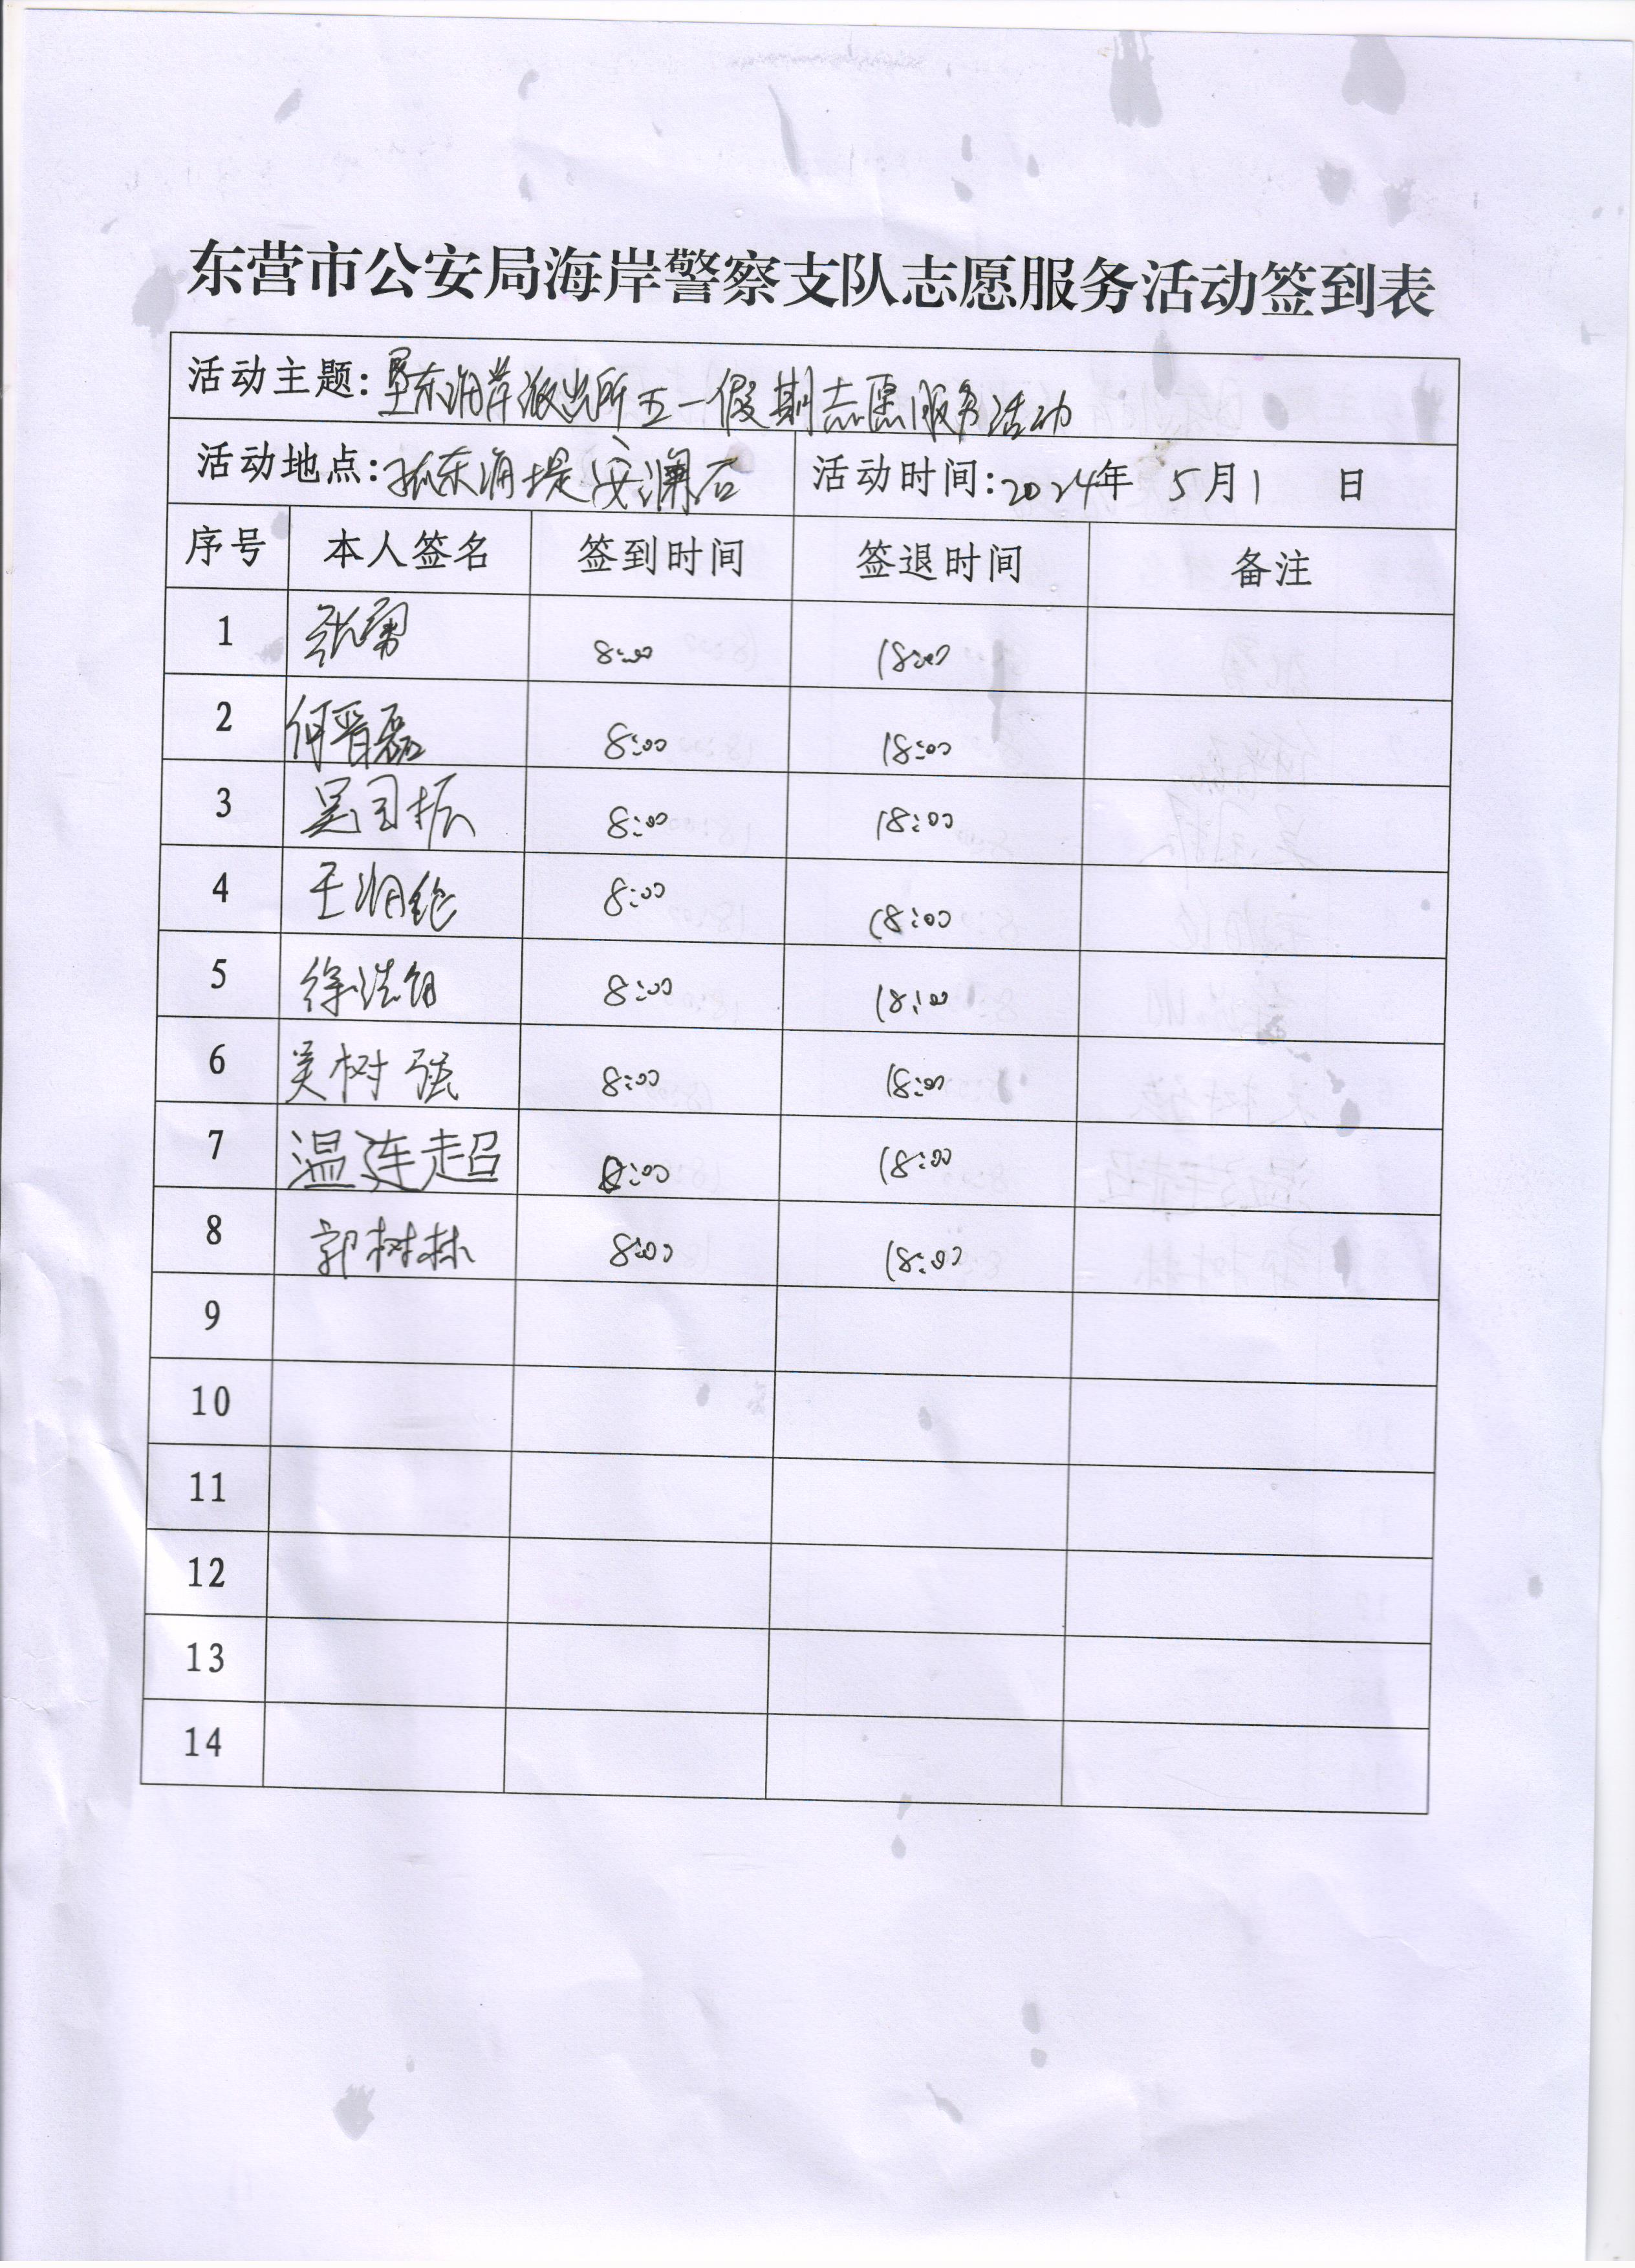 东营市公安局海岸警察支队志愿服务活动签到表
活动主题:垦东海岸派出所五一假期志愿服务活动
活动地点:孤东海堤安澜石 活动时间:2024年 5月1 日
序号 本人签名 签到时间 签退时间 备注
1 张勇 8:00 18:00
2 何晋磊 8:00 18:00
3 吴司振 8:00 18:00
4 王 8:00 18:00
5 徐浩 8:00 18:00
6 吴树强 8:00 18:00
7 温连超 8:00 18:00
8 郭树林 8:00 18:00
9
10
11
12
13
14